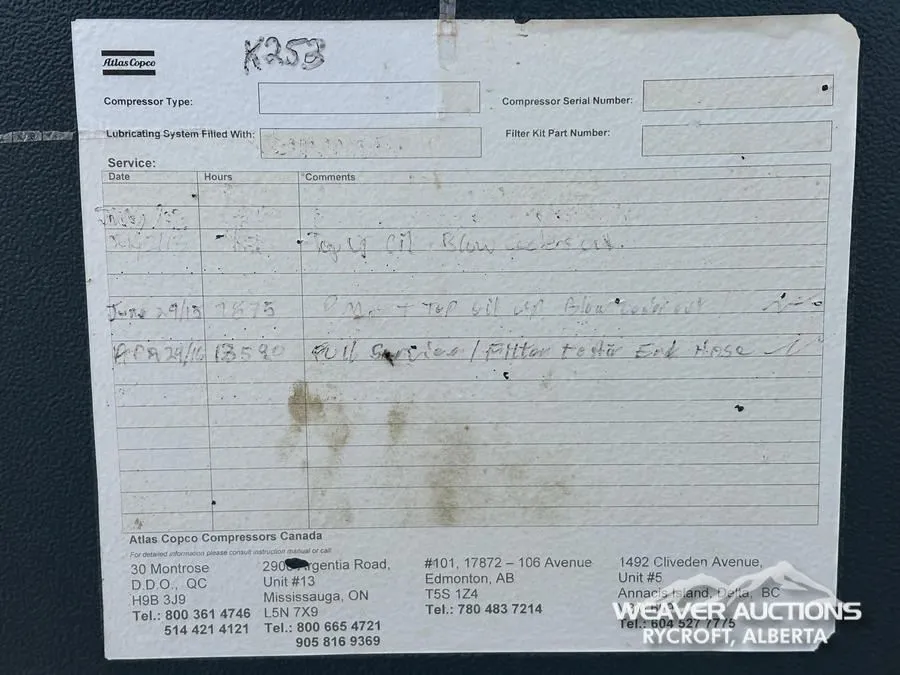 Atlas Copco
K253
Compressor Type:
Compressor Serial Number:
Lubricating System Filled With:
Filter Kit Part Number:
Service:
Date Hours Comments
Top up Oil Blow coolers out.
June 29/15 7875 + Top oil up Blow cooler out
APR 29/16 13590 Full Service / Filter End Hose
Atlas Copco Compressors Canada
For detailed information please consult instruction manual or call
30 Montrose
D.D.O., QC
H9B 3J9
Tel.: 800 361 4746
514 421 4121
2900 Argentia Road,
Unit #13
Mississauga, ON
L5N 7X9
Tel.: 800 665 4721
905 816 9369
#101, 17872 – 106 Avenue
Edmonton, AB
T5S 1Z4
Tel.: 780 483 7214
1492 Cliveden Avenue,
Unit #5
Annacis Island, Delta, BC
Tel.: 604 527 7775
WEAVER AUCTIONS
RYCROFT, ALBERTA